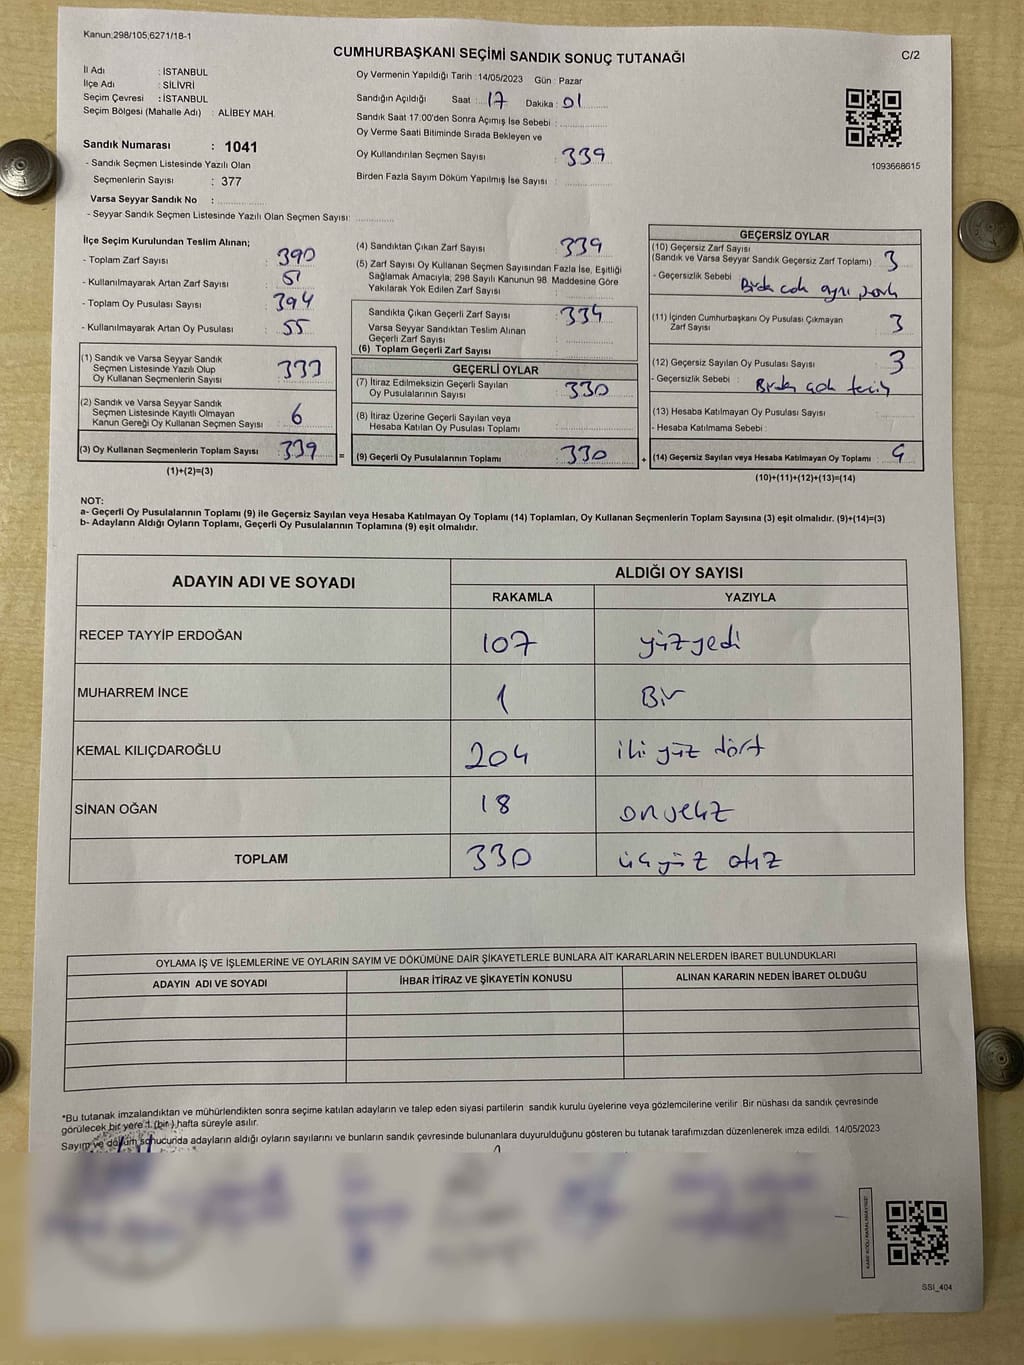 Kanun:298/105,6271/18-1
CUMHURBAŞKANI SEÇİMİ SANDIK SONUÇ TUTANAĞI
C/2
İl Adı : İSTANBUL
İlçe Adı : SİLİVRİ
Seçim Çevresi : İSTANBUL
Seçim Bölgesi (Mahalle Adı) : ALİBEY MAH.
Sandık Numarası : 1041
- Sandık Seçmen Listesinde Yazılı Olan
Seçmenlerin Sayısı : 377
Varsa Seyyar Sandık No :
- Seyyar Sandık Seçmen Listesinde Yazılı Olan Seçmen Sayısı:
Oy Vermenin Yapıldığı Tarih : 14/05/2023 Gün : Pazar
Sandığın Açıldığı Saat : 17 Dakika : 01
Sandık Saat 17:00'den Sonra Açımış İse Sebebi :
Oy Verme Saati Bitiminde Sırada Bekleyen ve
Oy Kullandırılan Seçmen Sayısı : 339
Birden Fazla Sayım Döküm Yapılmış İse Sayısı :
1093668615
İlçe Seçim Kurulundan Teslim Alınan;
- Toplam Zarf Sayısı : 390
- Kullanılmayarak Artan Zarf Sayısı : 51
- Toplam Oy Pusulası Sayısı : 394
- Kullanılmayarak Artan Oy Pusulası : 55
(1) Sandık ve Varsa Seyyar Sandık
Seçmen Listesinde Yazılı Olup
Oy Kullanan Seçmenlerin Sayısı : 333
(2) Sandık ve Varsa Seyyar Sandık
Seçmen Listesinde Kayıtlı Olmayan
Kanun Gereği Oy Kullanan Seçmen Sayısı : 6
(3) Oy Kullanan Seçmenlerin Toplam Sayısı : 339
(1)+(2)=(3)
(4) Sandıktan Çıkan Zarf Sayısı : 339
(5) Zarf Sayısı Oy Kullanan Seçmen Sayısından Fazla İse, Eşitliği
Sağlamak Amacıyla, 298 Sayılı Kanunun 98. Maddesine Göre
Yakılarak Yok Edilen Zarf Sayısı :
Sandıkta Çıkan Geçerli Zarf Sayısı : 334
Varsa Seyyar Sandıktan Teslim Alınan
Geçerli Zarf Sayısı :
(6) Toplam Geçerli Zarf Sayısı :
GEÇERLİ OYLAR
(7) İtiraz Edilmeksizin Geçerli Sayılan
Oy Pusulalarının Sayısı : 330
(8) İtiraz Üzerine Geçerli Sayılan veya
Hesaba Katılan Oy Pusulası Toplamı :
= (9) Geçerli Oy Pusulalarının Toplamı : 330
GEÇERSİZ OYLAR
(10) Geçersiz Zarf Sayısı
(Sandık ve Varsa Seyyar Sandık Geçersiz Zarf Toplamı) : 3
- Geçersizlik Sebebi : çok ayrı
(11) İçinden Cumhurbaşkanı Oy Pusulası Çıkmayan
Zarf Sayısı : 3
(12) Geçersiz Sayılan Oy Pusulası Sayısı : 3
- Geçersizlik Sebebi : Birden çok tercih
(13) Hesaba Katılmayan Oy Pusulası Sayısı :
- Hesaba Katılmama Sebebi :
+ (14) Geçersiz Sayılan veya Hesaba Katılmayan Oy Toplamı : 9
(10)+(11)+(12)+(13)=(14)
NOT:
a- Geçerli Oy Pusulalarının Toplamı (9) ile Geçersiz Sayılan veya Hesaba Katılmayan Oy Toplamı (14) Toplamları, Oy Kullanan Seçmenlerin Toplam Sayısına (3) eşit olmalıdır. (9)+(14)=(3)
b- Adayların Aldığı Oyların Toplamı, Geçerli Oy Pusulalarının Toplamına (9) eşit olmalıdır.
ADAYIN ADI VE SOYADI
ALDIĞI OY SAYISI
RAKAMLA YAZIYLA
RECEP TAYYİP ERDOĞAN 107 yüzyedi
MUHARREM İNCE 1 Bir
KEMAL KILIÇDAROĞLU 204 iki yüz dört
SİNAN OĞAN 18 onsekiz
TOPLAM 330 üçyüz otuz
OYLAMA İŞ VE İŞLEMLERİNE VE OYLARIN SAYIM VE DÖKÜMÜNE DAİR ŞİKAYETLERLE BUNLARA AİT KARARLARIN NELERDEN İBARET BULUNDUKLARI
ADAYIN ADI VE SOYADI İHBAR İTİRAZ VE ŞİKAYETİN KONUSU ALINAN KARARIN NEDEN İBARET OLDUĞU
*Bu tutanak imzalandıktan ve mühürlendikten sonra seçime katılan adayların ve talep eden siyasi partilerin sandık kurulu üyelerine veya gözlemcilerine verilir. Bir nüshası da sandık çevresinde
görülecek bir yere 1 (bir) hafta süreyle asılır.
Sayım ve döküm sonucunda adayların aldığı oyların sayılarını ve bunların sandık çevresinde bulunanlara duyurulduğunu gösteren bu tutanak tarafımızdan düzenlenerek imza edildi. 14/05/2023
SSİ_404